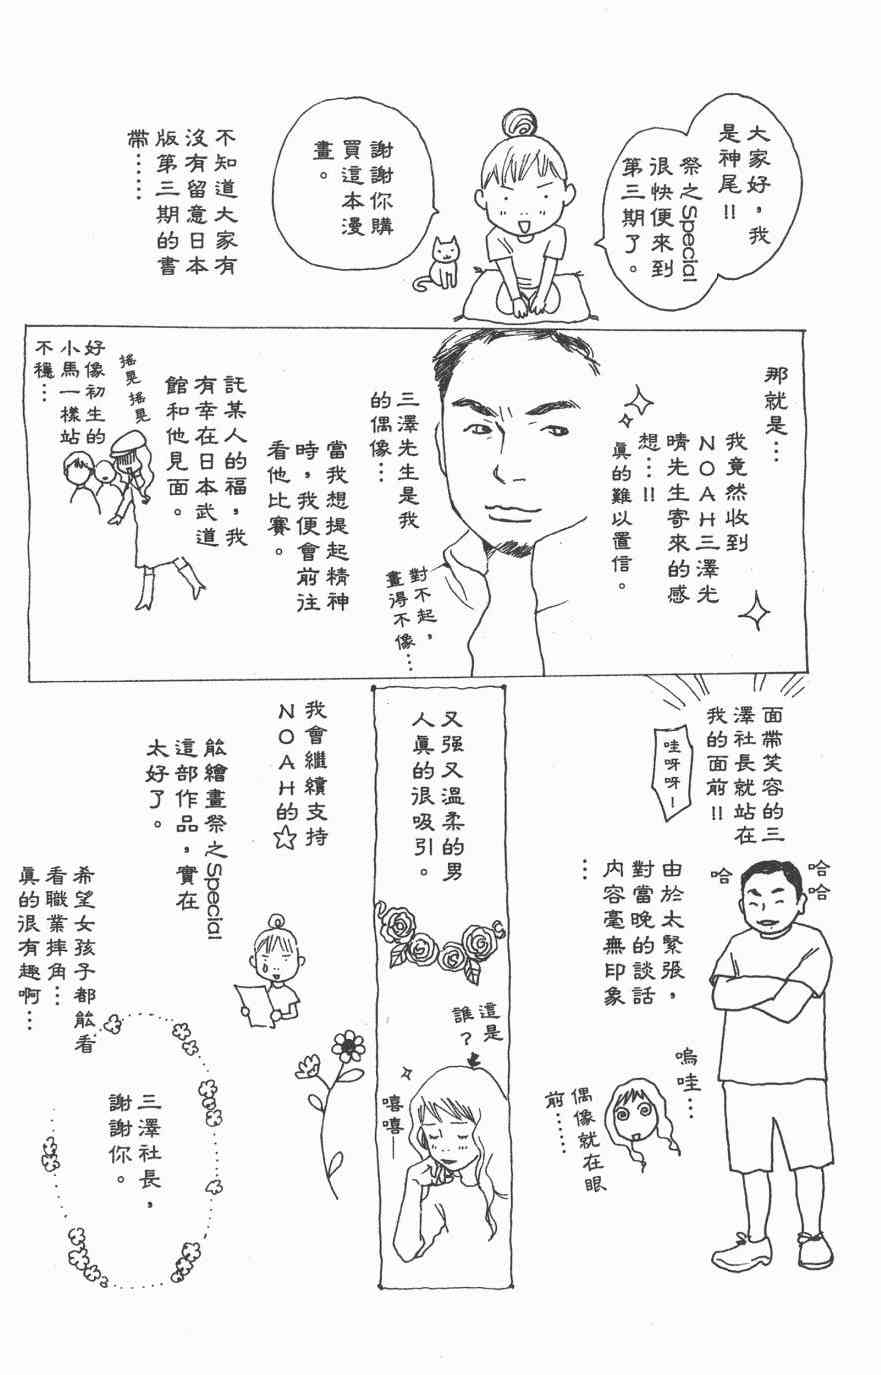 大家好，我
是神尾!!
祭之Special
很快便來到
第三期了。
謝謝你購
買這本漫
畫。
不知道大家有
沒有留意日本
版第三期的書
帶……
那就是…
我竟然收到
NOAH三澤光
晴先生寄來的感
想…!!
真的難以置信。
三澤先生是我
的偶像…
對不起，
畫得不像…
當我想提起精神
時，我便會前往
看他比賽。
託某人的福，我
有幸在日本武道
館和他見面。
搖晃 搖晃
好像初生的
小馬一樣站
不穩…
面帶笑容的三
澤社長就站在
我的面前!!
哇呀呀—
哈哈
哈
由於太緊張，
對當晚的談話
內容毫無印象
…
嗚哇…
偶像就在眼
前……
又强又溫柔的男
人真的很吸引。
這是
誰？
嘻嘻—
我會繼續支持
NOAH的☆
能繪畫祭之Special
這部作品，實在
太好了。
希望女孩子都能看
看職業摔角…
真的很有趣啊…
三澤社長，
謝謝你。